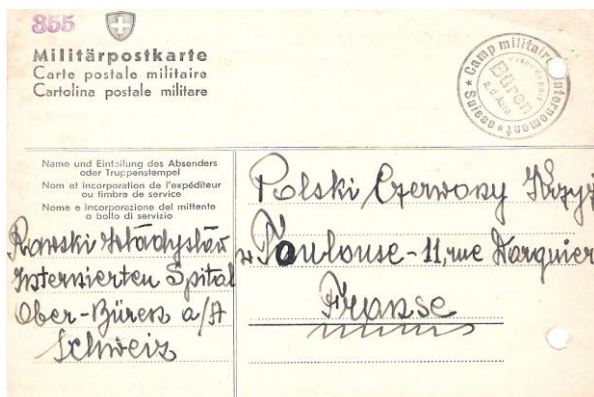 355
Militärpostkarte
Carte postale militaire
Cartolina postale militare
Camp militaire internement
Suisse
Büren
a.d. Aare
Name und Einteilung des Absenders
oder Truppenstempel
Nom et incorporation de l'expéditeur
ou timbre de service
Nome e incorporazione del mittente
o bollo di servizio
Rawski Władysław
Internierten Spital
Ober-Büren a/A
Schweiz
Polski Czerwony Krzyż
w Toulouse-11, rue Darquier
Franse